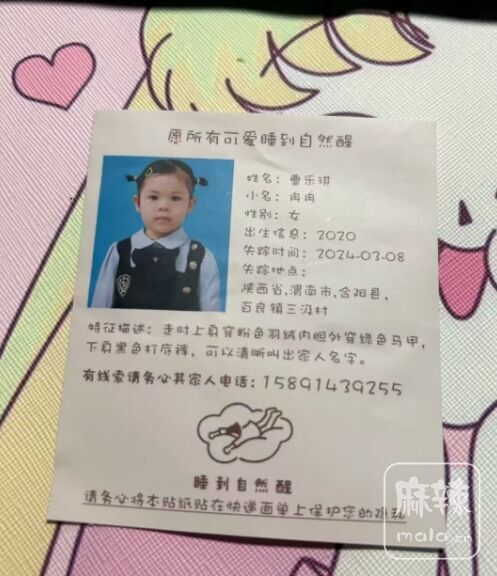 愿所有可爱睡到自然醒
姓名：曹乐琪
小名：冉冉
性别：女
出生信息：2020
失踪时间：2024-03-08
失踪地点：
陕西省,渭南市,合阳县,
百良镇三汲村
特征描述：走时上身穿粉色羽绒内胆外穿绿色马甲，
下身黑色打底裤，可以清晰叫出家人名字。
有线索请务必其家人电话：15891439255
睡到自然醒
请务必将本贴纸贴在快递面单上保护您的隐私
麻辣
mala.cn